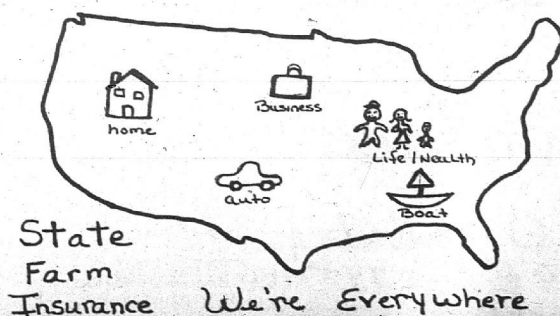 home
Business
Life/Health
auto
Boat
State
Farm
Insurance We're Everywhere